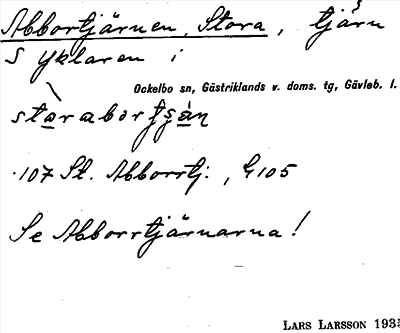 Abbortjärnen, Stora, tjärn
S Yklaren i
Ockelbo sn, Gästriklands v. doms. tg, Gävleb. l.
107 St. Abborrtj. , G105
Se Abborrtjärnarna!
LARS LARSSON 1935